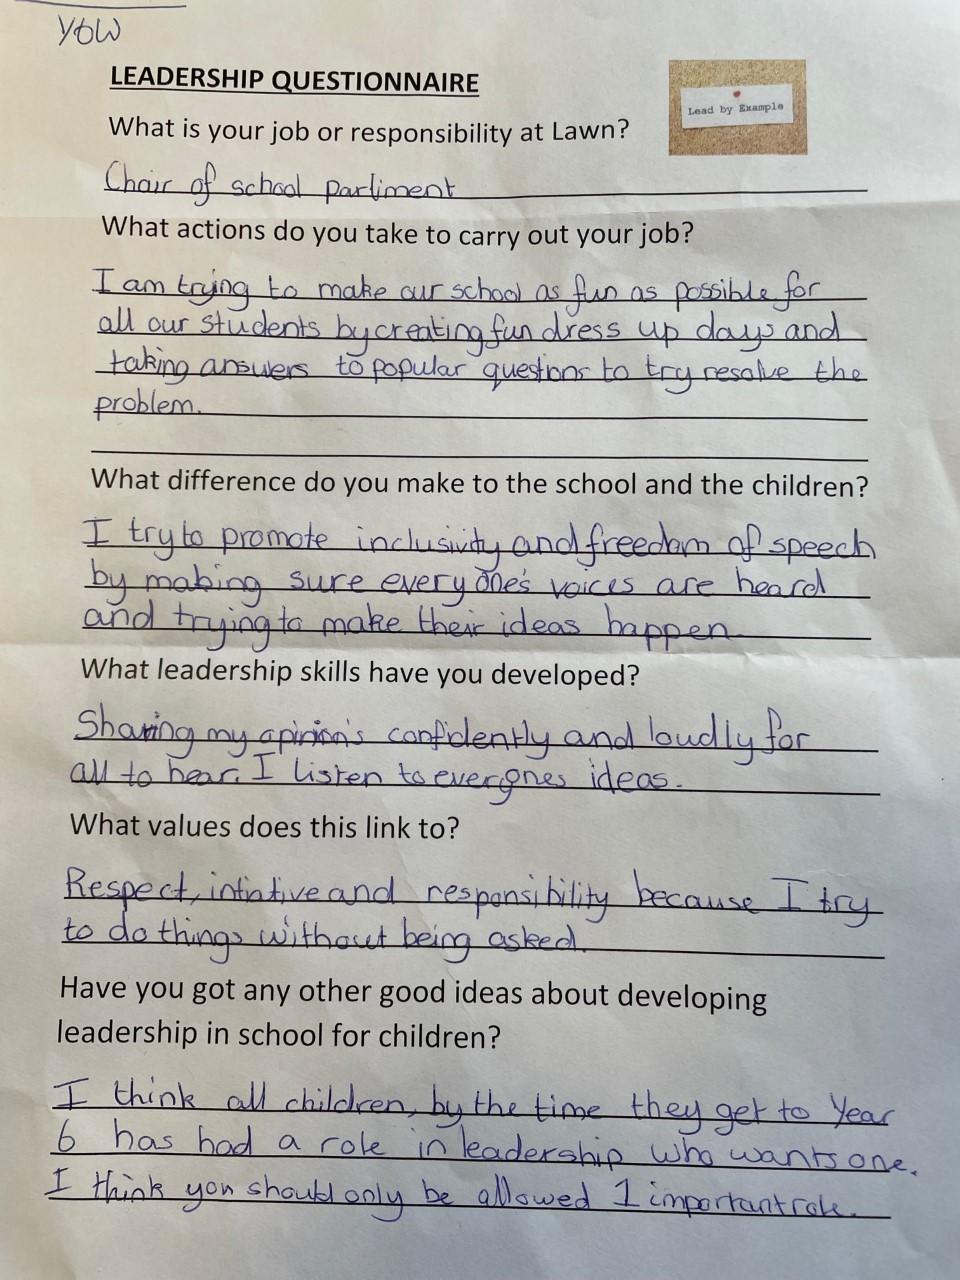 Y6W
LEADERSHIP QUESTIONNAIRE
Lead by Example
What is your job or responsibility at Lawn?
Chair of school parliment
What actions do you take to carry out your job?
I am trying to make our school as fun as possible for
all our students by creating fun dress up days and
taking answers to popular questions to try resolve the
problem.
What difference do you make to the school and the children?
I try to promote inclusivity and freedom of speech
by making sure everyone's voices are heard
and trying to make their ideas happen
What leadership skills have you developed?
Sharing my opinion's confidently and loudly for
all to hear. I listen to everyones ideas.
What values does this link to?
Respect, intiative and responsibility because I try
to do things without being asked.
Have you got any other good ideas about developing
leadership in school for children?
I think all children, by the time they get to Year
6 has had a role in leadership who wants one.
I think you should only be allowed 1 important role.